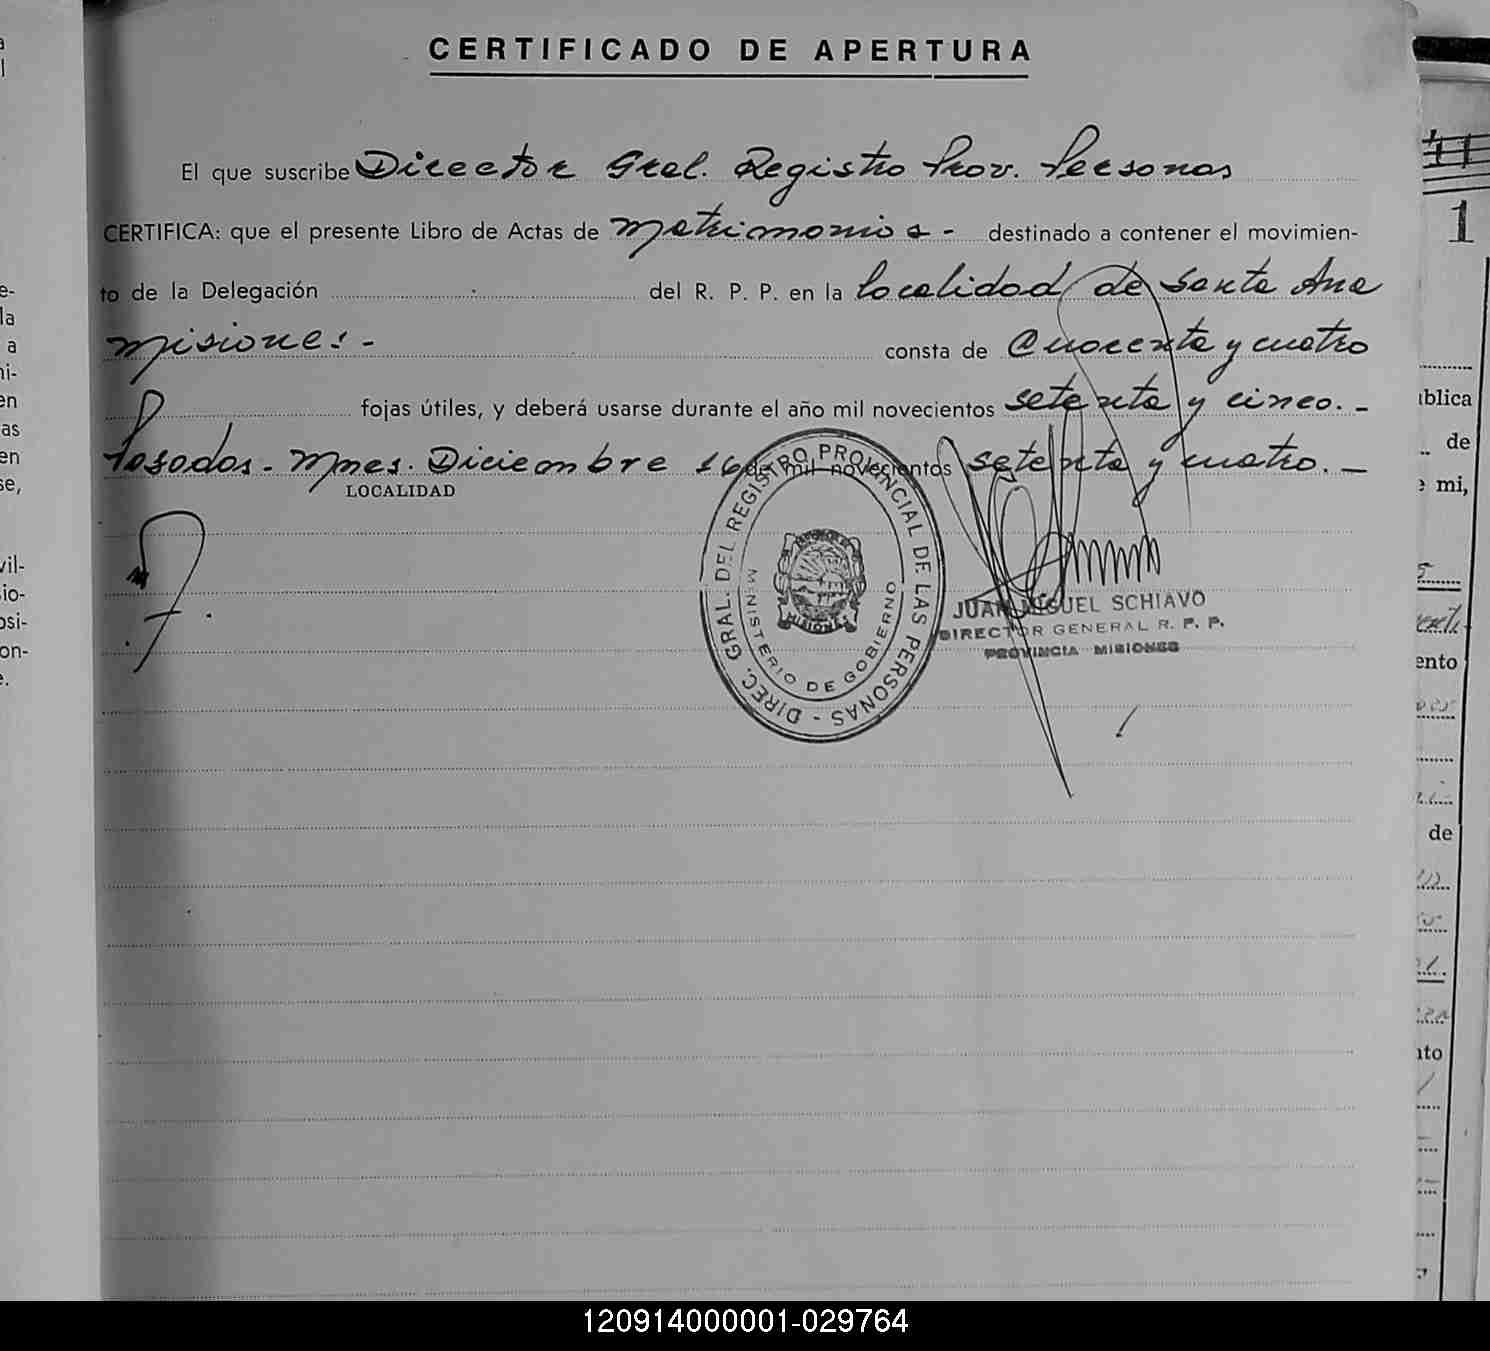 CERTIFICADO DE APERTURA
El que suscribe Director Gral. Registro Prov. Personas
CERTIFICA: que el presente Libro de Actas de Matrimonios - destinado a contener el movimien-
to de la Delegación del R. P. P. en la Localidad de Santa Ana
Misiones.- consta de Cuarenta y cuatro
fojas útiles, y deberá usarse durante el año mil novecientos setenta y cinco. -
Posadas - Mnes. Diciembre 16 de mil novecientos setenta y cuatro. -
LOCALIDAD
DIREC. GRAL. DEL REGISTRO PROVINCIAL DE LAS PERSONAS -
MINISTERIO DE GOBIERNO
MISIONES
JUAN MIGUEL SCHIAVO
DIRECTOR GENERAL R. P. P.
PROVINCIA MISIONES
1
de
mi,
ento
de
120914000001-029764